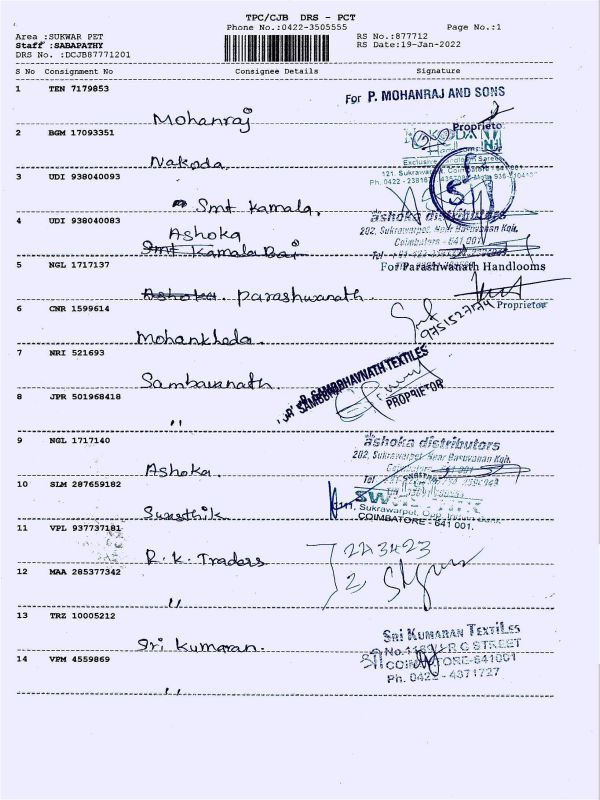 TPC/CJB DRS - PCT
Phone No.:0422-3505555 Page No.:1
Area :SUKWAR PET RS No.:877712
Staff :SABAPATHY RS Date:19-Jan-2022
DRS No. :DCJB87771201
S No Consignment No Consignee Details Signature
1 TEN 7179853
For P. MOHANRAJ AND SONS
Mohanraj
Proprietor
2 BGM 17093351
NAKODA
Nakoda
121, Sukrawarpet, Coimbatore - 641 001.
3 UDI 938040093
Smt Kamala.
ashoka distributors
4 UDI 938040083
202, Sukrawarpet, Near Baruvanan Koil,
Ashoka
Coimbatore - 641 001.
Smt Kamala Bai
5 NGL 1717137
For Parashwanath Handlooms
Ashoka. Parashwanath.
Proprietor
6 CNR 1599614
9751527174
Mohankheda.
7 NRI 521693
SAMBHAVNATH TEXTILES
Sambavanath.
PROPRIETOR
8 JPR 501968418
"
9 NGL 1717140
ashoka distributors
202, Sukrawarpet, Near Baruvanan Koil,
Ashoka.
10 SLM 287659182
Sukrawarpet, Opp. Indian Bank
COIMBATORE - 641 001.
Swasthik
11 VPL 937737181
R.K. Traders
223423
12 MAA 285377342
2
"
13 TRZ 10005212
Sri Kumaran.
SRI KUMARAN TEXTILES
14 VPM 4559869
COIMBATORE-641001
Ph. 0422 - 4371727
"